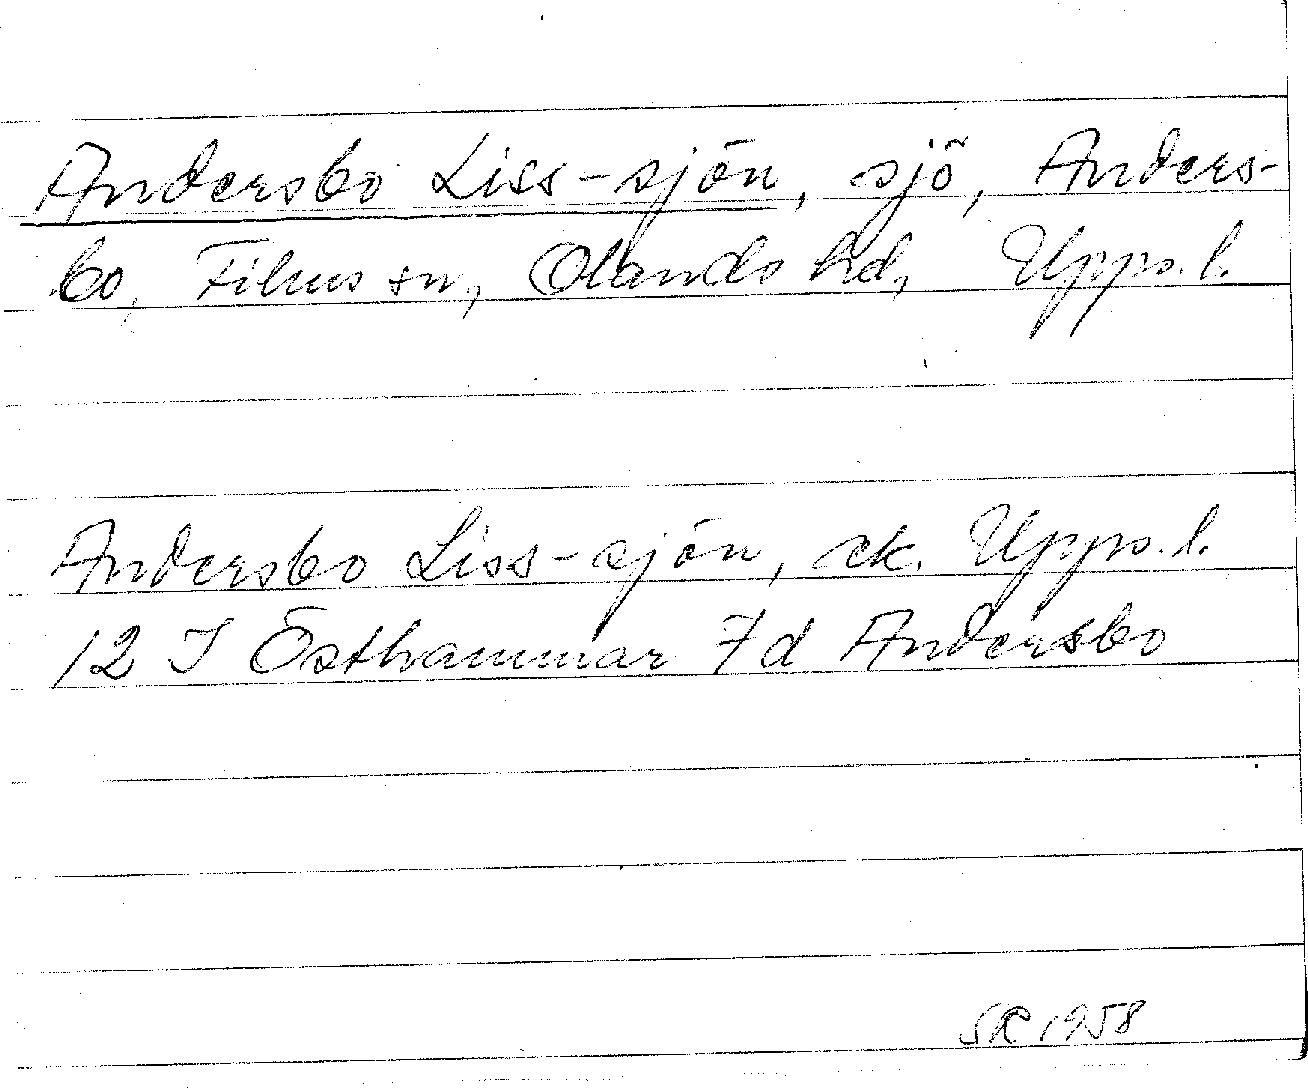 Andersbo Liss-sjön, sjö, Anders-
bo, Films sn, Olands hd, Upps.l.
Andersbo Liss-sjön, ek. Upps.l.
12 I Östhammar 7d Andersbo
SR 1958